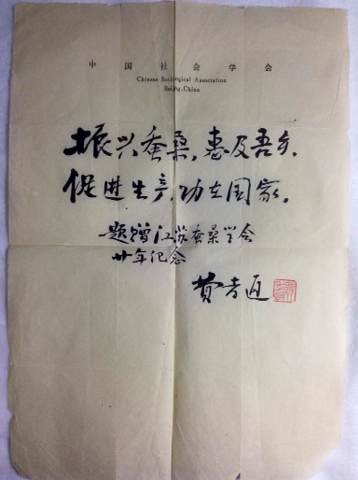 中国社会学会
Chinese Sociological Association
Beijing, China
振兴蚕桑，惠及吾乡，
促进生产，功在国家。
题赠江苏蚕桑学会
廿年纪念
费孝通